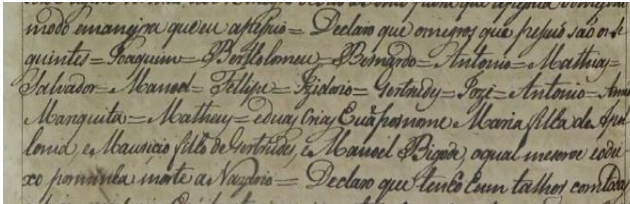 modo emaneira que eu aprepuio = Declaro que os negros que pesuio são os si
guintes = Joaquim = Bertholomeu = Bernardo = Antonio = Matheus =
Salvador = Manoel = Fellipe = Izidorio = Gertrudy = Jozé = Antonio = Anna
Marquita = Matheus = eduas Crias Euã por nome Maria filha de Apu
lonia, e Mauricio filho de Gertrudes, e Manoel Bigode, aqual mesmo e
xo por minha morte a Nazario = Declaro que tenho hum talhos com todas